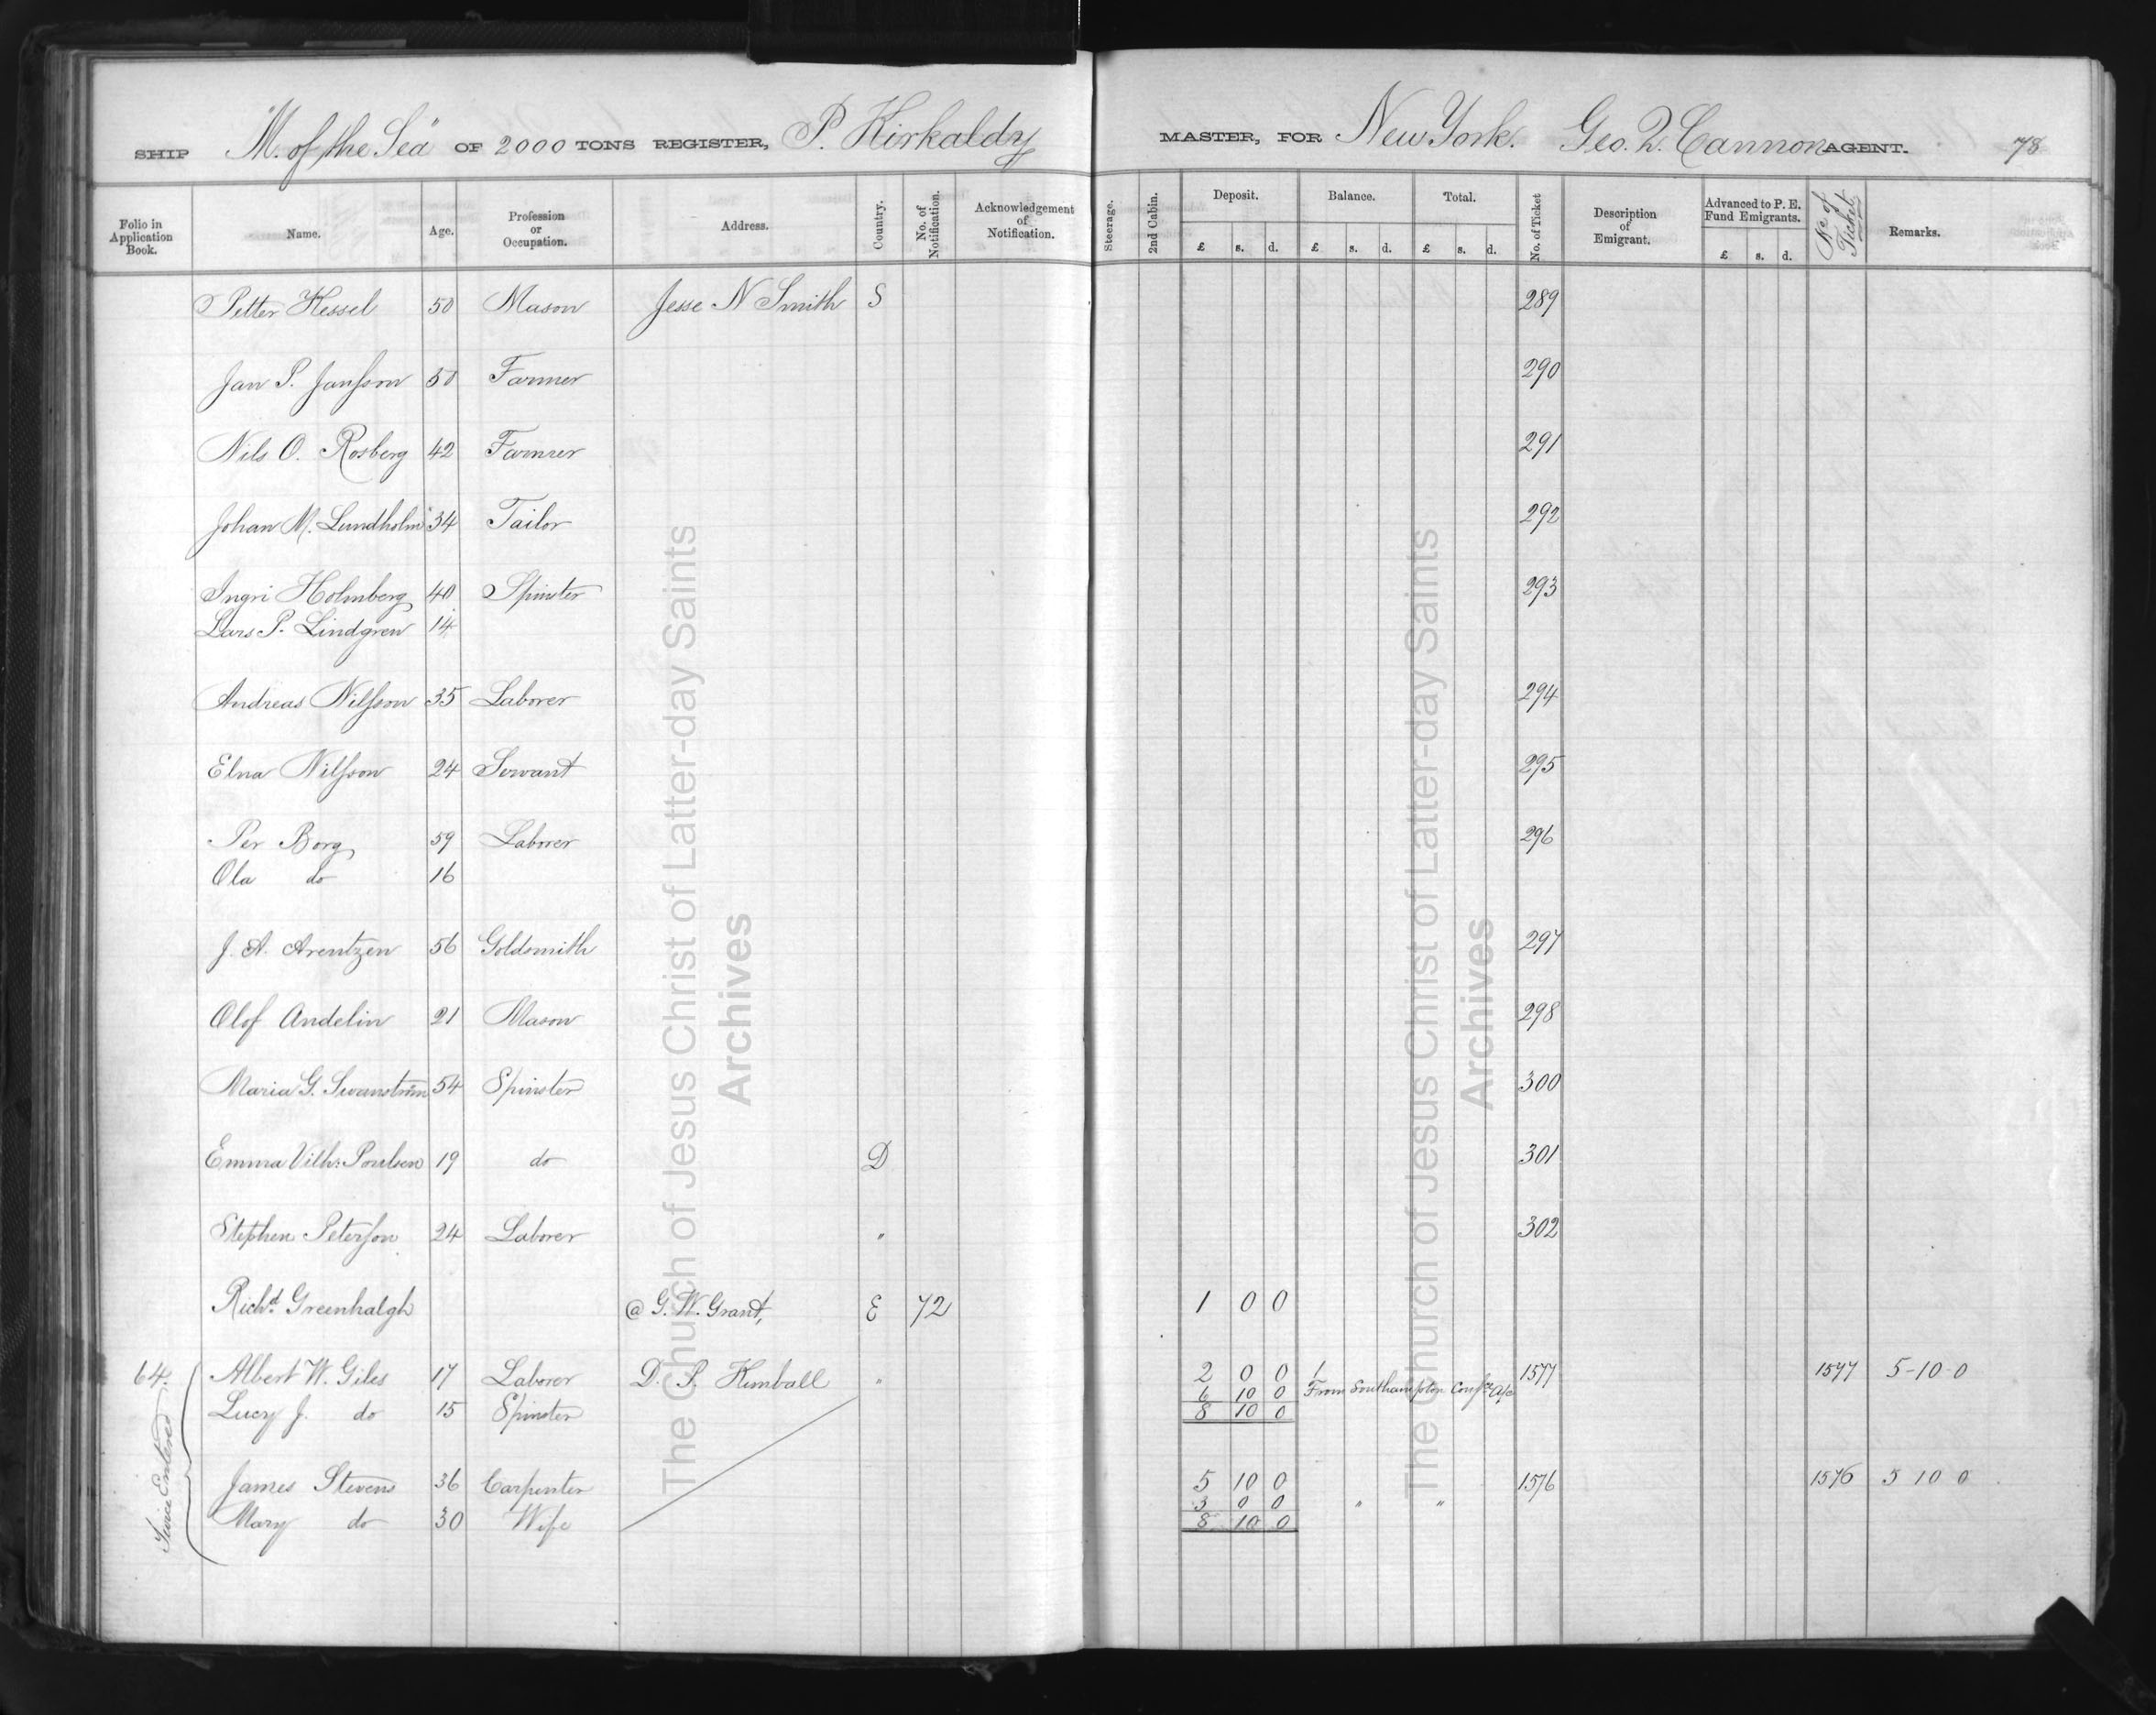 SHIP "M. of the Sea" OF 2000 TONS REGISTER, P. Kirkaldy MASTER, FOR New York. Geo. Q. Cannon AGENT. 78
Folio in Application Book. Name. Age. Profession or Occupation. Address. Country. No. of Notification. Acknowledgement of Notification. Steerage. 2nd Cabin. Deposit. £ s. d. Balance. £ s. d. Total. £ s. d. No. of Ticket Description of Emigrant. Advanced to P. E. Fund Emigrants. £ s. d. No of Ticket Remarks.
Petter Hessel 50 Mason Jesse N Smith S 289
Jan P. Jansson 50 Farmer 290
Nils O. Rosberg 42 Farmer 291
Johan M. Lundholm 34 Tailor 292
Ingri Holmberg 40 Spinster 293
Lars P. Lindgren 14
Andreas Nilsson 35 Laborer 294
Elna Nilsson 24 Servant 295
Per Borg 59 Laborer 296
Ola do 16
J. A. Arentzen 56 Goldsmith 297
Olof Andelin 21 Mason 298
Maria G. Swanström 54 Spinster 300
Emma Vilh: Poulsen 19 do D 301
Stephen Peterson 24 Laborer " 302
Richd Greenhalgh @ G. W. Grant, E 72 1 0 0
64. Albert W. Giles 17 Laborer D. P. Kimball " 2 0 0 1577 1577 5-10-0
6 10 0 From Southampton Confce a/c
Lucy J. do 15 Spinster 8 10 0
James Stevens 36 Carpenter 5 10 0 1576 1576 5 10 0
3 0 0 " "
Mary do 30 Wife 8 10 0
Twice Entered
The Church of Jesus Christ of Latter-day Saints
Archives
The Church of Jesus Christ of Latter-day Saints
Archives